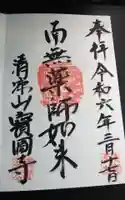 奉拝令和六年三月十七日
南無薬師如来
清涼山寶圓寺